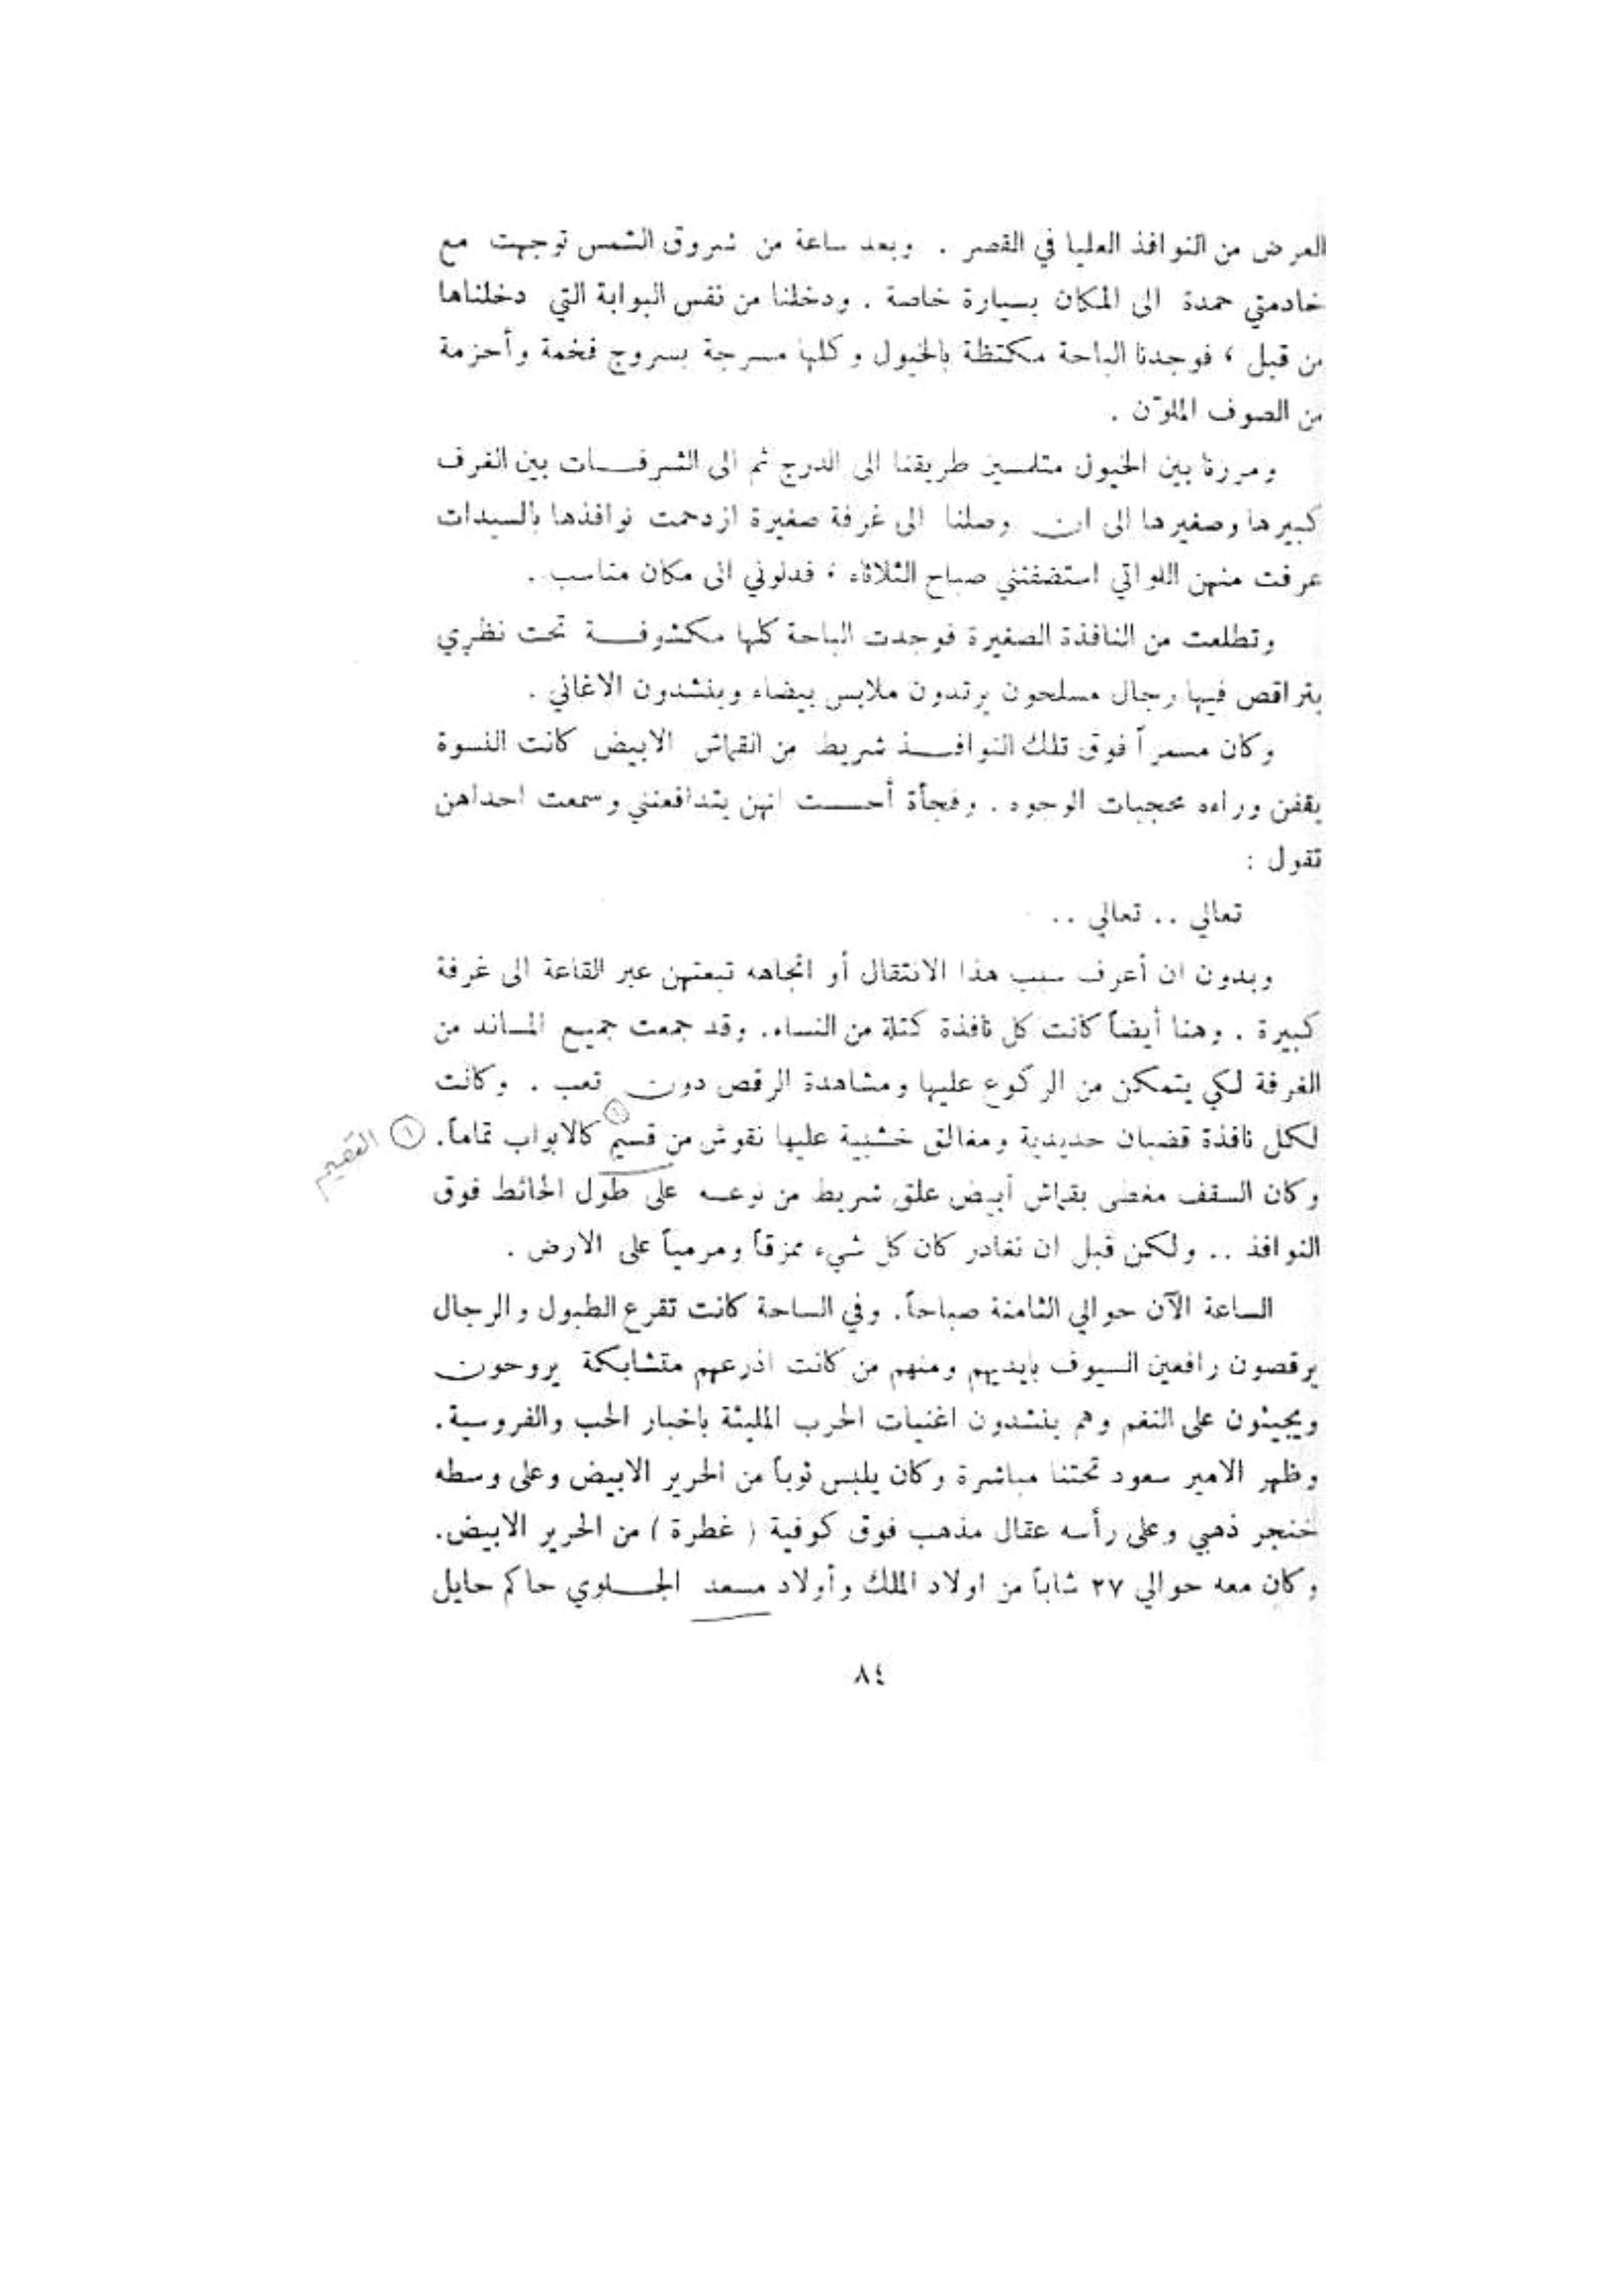 العرض من النوافذ العليا في القصر . وبعد ساعة من شروق الشمس توجهت مع
خادمتي حمدة الى المكان بسيارة خاصة . ودخلنا من نفس البوابة التي دخلناها
من قبل ، فوجدنا الباحة مكتظة بالخيول وكلها مسرجة بسروج فخمة وأحزمة
من الصوف الملوّن .
ومررنا بين الخيول متلمسين طريقنا الى الدرج ثم الى الشرفات بين الغرف
كبيرها وصغيرها الى ان وصلنا الى غرفة صغيرة ازدحمت نوافذها بالسيدات
عرفت منهن اللواتي استضفنني صباح الثلاثاء ، فدلوني الى مكان مناسب .
وتطلعت من النافذة الصغيرة فوجدت الباحة كلها مكشوفة تحت نظري
يتراقص فيها رجال مسلحون يرتدون ملابس بيضاء وينشدون الاغاني .
وكان مسمراً فوق تلك النوافذ شريط من القماش الابيض كانت النسوة
يقفن وراءه محجبات الوجوه . وفجأة أحسست انهن يتدافعنني وسمعت احداهن
تقول :
تعالي .. تعالي ..
وبدون ان أعرف سبب هذا الانتقال أو اتجاهه تبعتهن عبر القاعة الى غرفة
كبيرة . وهنا أيضاً كانت كل نافذة كتلة من النساء. وقد جمعت جميع المساند من
الغرفة لكي يتمكن من الركوع عليها ومشاهدة الرقص دون تعب . وكانت
لكل نافذة قضبان حديدية ومغالق خشبية عليها نقوش من قسيم (١) كالابواب تماماً. (١) القصيم
وكان السقف مغطى بقماش أبيض علق شريط من نوعه على طول الحائط فوق
النوافذ .. ولكن قبل ان نغادر كان كل شيء ممزقاً ومرمياً على الارض .
الساعة الآن حوالي الثامنة صباحاً. وفي الساحة كانت تقرع الطبول والرجال
يرقصون رافعين السيوف بايديهم ومنهم من كانت اذرعهم متشابكة يروحون
ويجيئون على النغم وهم ينشدون اغنيات الحرب المليئة باخبار الحب والفروسية.
وظهر الامير سعود تحتنا مباشرة وكان يلبس ثوباً من الحرير الابيض وعلى وسطه
خنجر ذهبي وعلى رأسه عقال مذهب فوق كوفية ( غطرة ) من الحرير الابيض.
وكان معه حوالي ٢٧ شاباً من اولاد الملك وأولاد مسعد الجلوي حاكم حايل
٨٤